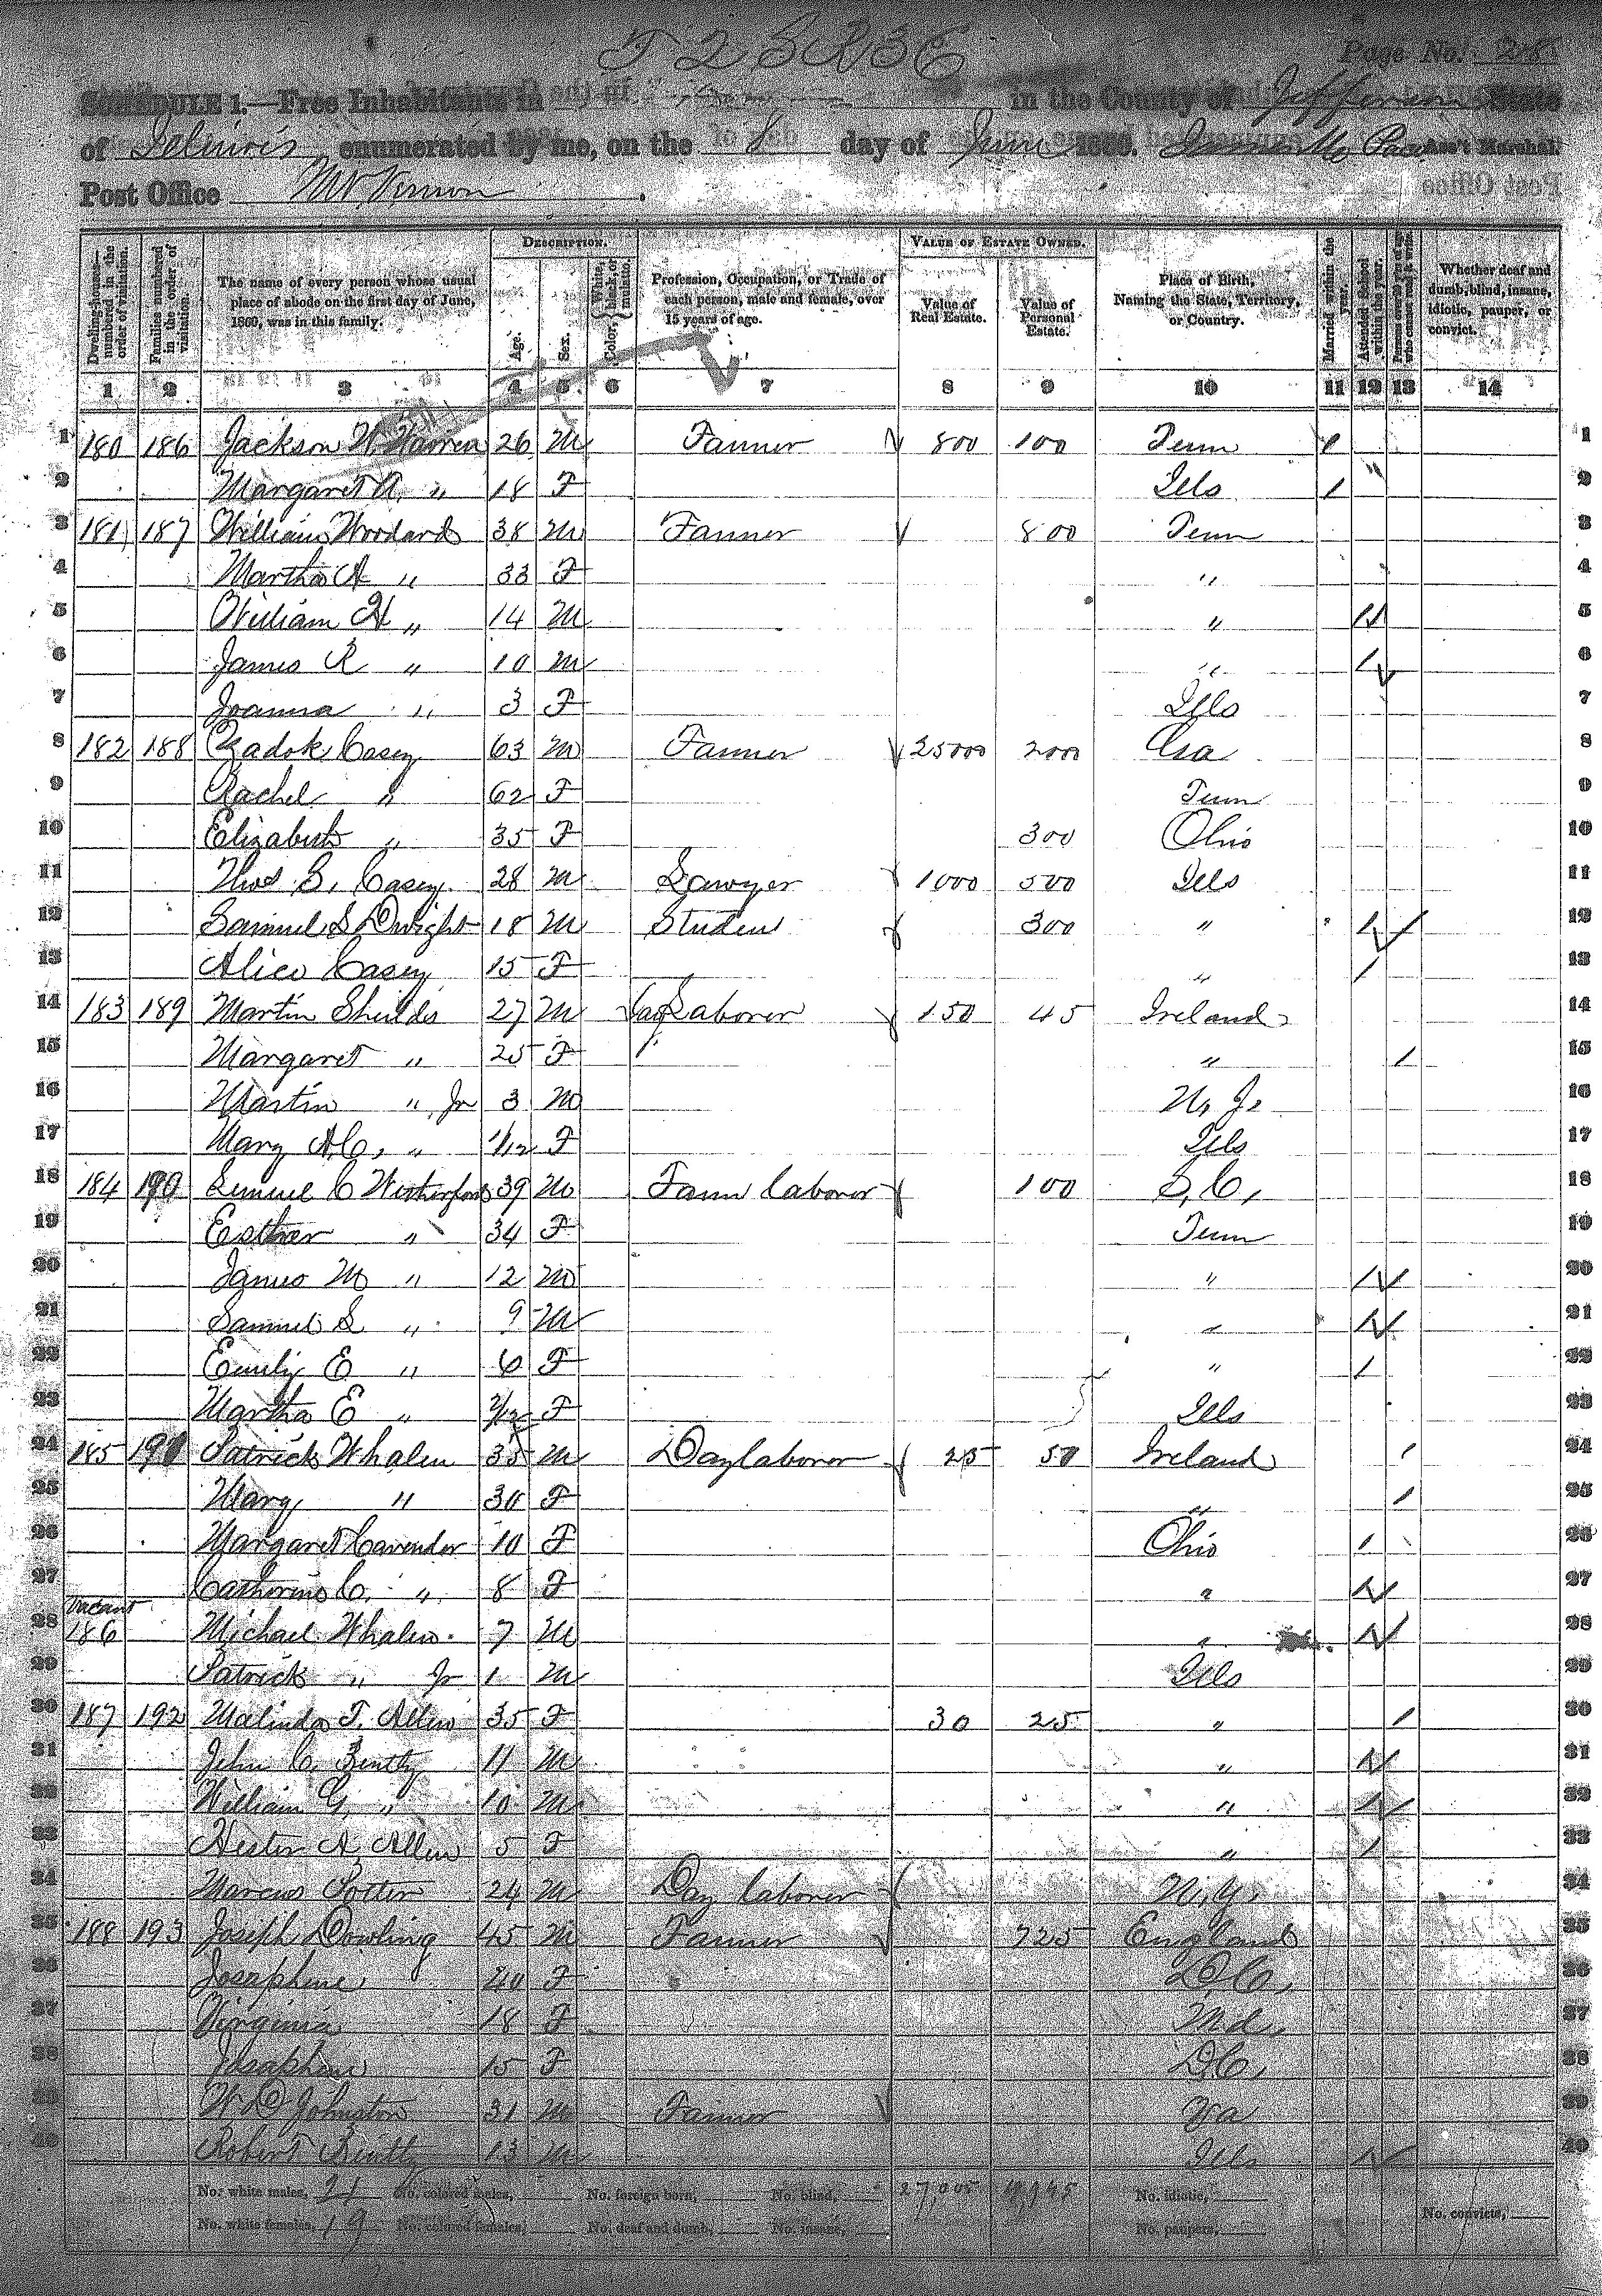 Page No. 28
SCHEDULE 1.—Free Inhabitants in in the County of Jefferson State
of Illinois enumerated by me, on the 8 day of June 1860. Ass't Marshal.
Post Office Mt. Vernon
Dwelling-houses—numbered in the order of visitation.
Families numbered in the order of visitation.
The name of every person whose usual place of abode on the first day of June, 1860, was in this family.
DESCRIPTION.
Age.
Sex.
Color, White, black, or mulatto.
Profession, Occupation, or Trade of each person, male and female, over 15 years of age.
VALUE OF ESTATE OWNED.
Value of Real Estate.
Value of Personal Estate.
Place of Birth, Naming the State, Territory, or Country.
Married within the year.
Attended School within the year.
Persons over 20 y'rs of age who cannot read & write.
Whether deaf and dumb, blind, insane, idiotic, pauper, or convict.
1 2 3 4 5 6 7 8 9 10 11 12 13 14
1 180 186 Jackson W. Warren 26 M Farmer 800 100 Tenn / 1
2 Margaret A. " 18 F Ills / 2
3 181 187 William Woodard 38 M Farmer 800 Tenn 3
4 Martha A " 33 F " 4
5 William H " 14 M " / 5
6 James R " 10 M " / 6
7 Joanna " 3 F Ills 7
8 182 188 Zadok Casey 63 M Farmer 25000 2000 Ga 8
9 Rachel " 62 F Tenn 9
10 Elizabeth " 35 F 300 Ohio 10
11 Thos S. Casey 28 M Lawyer 1000 500 Ills 11
12 Samuel S Dwight 18 M Student 300 " / 12
13 Alice Casey 15 F " / 13
14 183 189 Martin Shields 27 M Day Laborer 150 45 Ireland 14
15 Margaret " 25 F " / 15
16 Martin " Jr 3 M N. J. 16
17 Mary A.C. " 1/12 F Ills 17
18 184 190 Lemuel C Witherford 39 M Farm laborer 100 S. C. 18
19 Esther " 34 F Tenn 19
20 James M " 12 M " / 20
21 Samuel S " 9 M " / 21
22 Emily E " 6 F " / 22
23 Martha E " /12 F Ills 23
24 185 191 Patrick Whalen 35 M Day laborer 25 50 Ireland / 24
25 Mary " 30 F " / 25
26 Margaret Cavender 10 F Ohio / 26
27 Catherine C. " 8 F " / 27
vacant
28 186 Michael Whalen 7 M " / 28
29 Patrick " Jr 1 M Ills 29
30 187 192 Malinda F. Allen 35 F 30 25 " / 30
31 John C. Bently 11 M " / 31
32 William G. " 10 M " / 32
33 Hester A. Allen 5 F " / 33
34 Marcus Potter 24 M Day laborer N. Y. 34
35 188 193 Joseph Dowling 45 M Farmer 725 England 35
36 Josephine 40 F D. C. 36
37 Virginia 18 F Md. 37
38 Josephine 15 F D. C. 38
39 W D Johnston 31 M Farmer Va 39
40 Robert Bently 13 M Ills / 40
No. white males, 21 No. colored males, No. foreign born, No. blind, 27,005 No. idiotic,
No. white females, 19 No. colored females, No. deaf and dumb, No. insane, No. paupers, No. convicts,